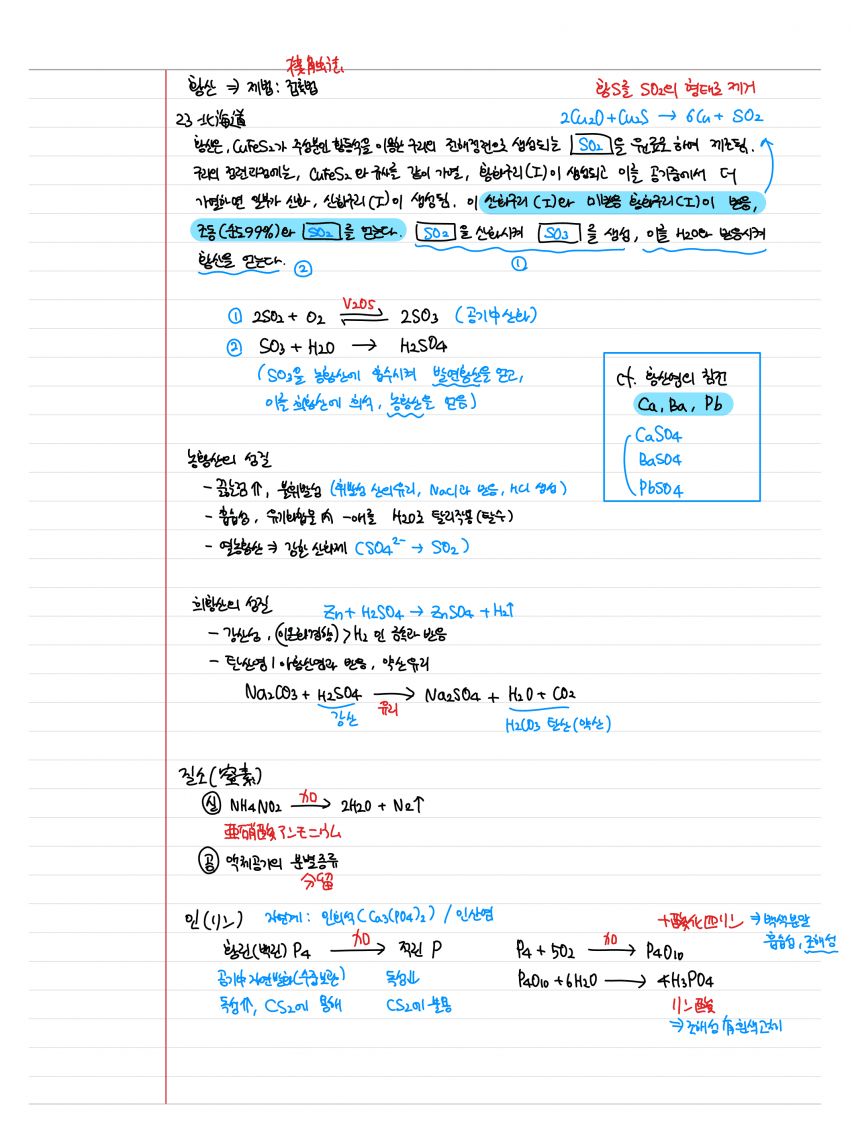 接触法
황산 ⇒ 제법: 접촉법
황S를 SO2의 형태로 제거
23 北海道
2Cu2O + Cu2S → 6Cu + SO2
황산은, CuFeS2가 주성분인 황동석을 이용한 구리의 전해정련으로 생성되는 SO2 을 원료로 하여 제조됨.
구리의 정련과정에는, CuFeS2 와 규사를 같이 가열, 황화구리(I)이 생성되고 이를 공기중에서 더
가열하면 일부가 산화, 산화구리(I)이 생성됨. 이 산화구리(I)와 미반응 황화구리(I)이 반응,
조동(순도99%)와 SO2 를 얻는다. SO2 을 산화시켜 SO3 를 생성, 이를 H2O와 반응시켜
황산을 얻는다. ② ①
① 2SO2 + O2 ⇌ 2SO3 (공기中산화)
V2O5
② SO3 + H2O → H2SO4
(SO3을 농황산에 흡수시켜 발연황산을 얻고,
이를 희황산에 희석, 농황산을 얻음)
cf. 황산염의 침전
Ca, Ba, Pb
CaSO4
BaSO4
PbSO4
농황산의 성질
- 끓는점↑, 불휘발성 (휘발성 산의유리, NaCl과 반응, HCl 생성)
- 흡습성, 유기화합물 内 -애를 H2O로 탈리작용(탈수)
- 열농황산 ⇒ 강한 산화제 (SO4²⁻ → SO2)
희황산의 성질
Zn + H2SO4 → ZnSO4 + H2↑
- 강산성, (이온화경향) > H2 인 금속과 반응
- 탄산염 / 아황산염과 반응, 약산유리
Na2CO3 + H2SO4 → Na2SO4 + H2O + CO2
강산 유리 H2CO3 탄산(약산)
질소(窒素)
실 NH4NO2 加→ 2H2O + N2↑
亜硝酸アンモニウム
공 액체공기의 분별증류
分留
인(リン) 자연계: 인회석(Ca3(PO4)2) / 인산염
황린(백린) P4 加→ 적린 P
공기中자연발화(수중보관) 독성↓
독성↑, CS2에 용해 CS2에 불용
十酸化四リン ⇒ 백색분말
흡습성, 조해성
P4 + 5O2 加→ P4O10
P4O10 + 6H2O → 4H3PO4
リン酸
⇒ 조해성有흰색고체